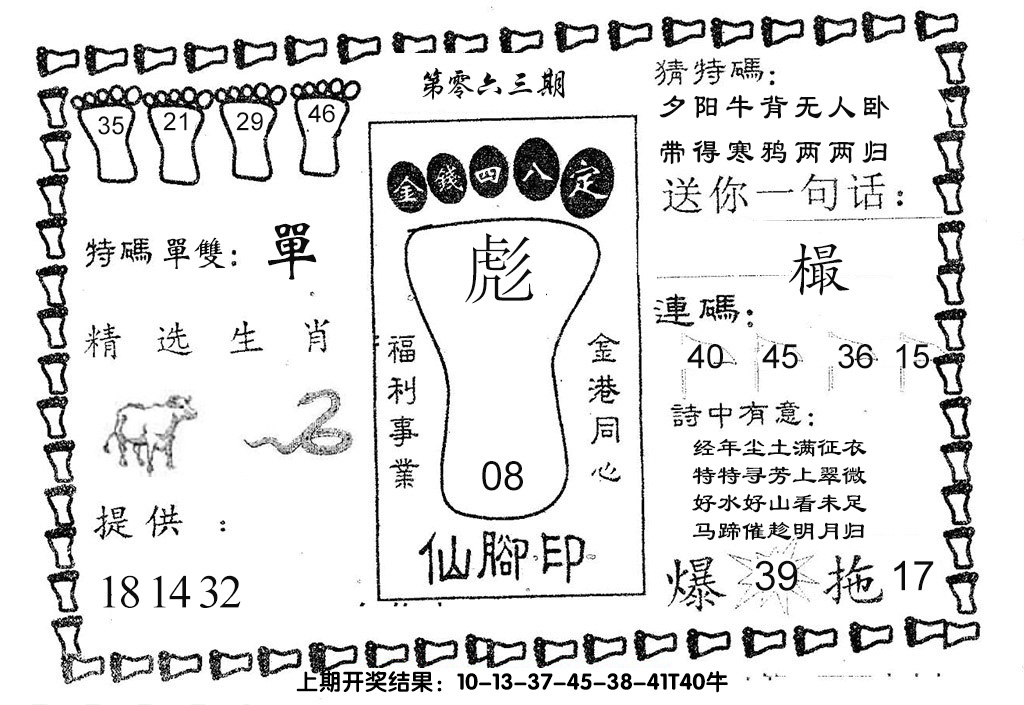 第零六三期
35
21
29
46
特碼單雙：單
精选生肖
提供：
18 14 32
金錢四八定
彪
福利事業
金港同心
08
仙腳印
猜特碼：
夕阳牛背无人卧
带得寒鸦两两归
送你一句话：
樶
連碼：
40 45 36 15
詩中有意：
经年尘土满征衣
特特寻芳上翠微
好水好山看未足
马蹄催趁明月归
爆 39 拖 17
上期开奖结果：10-13-37-45-38-41T40牛